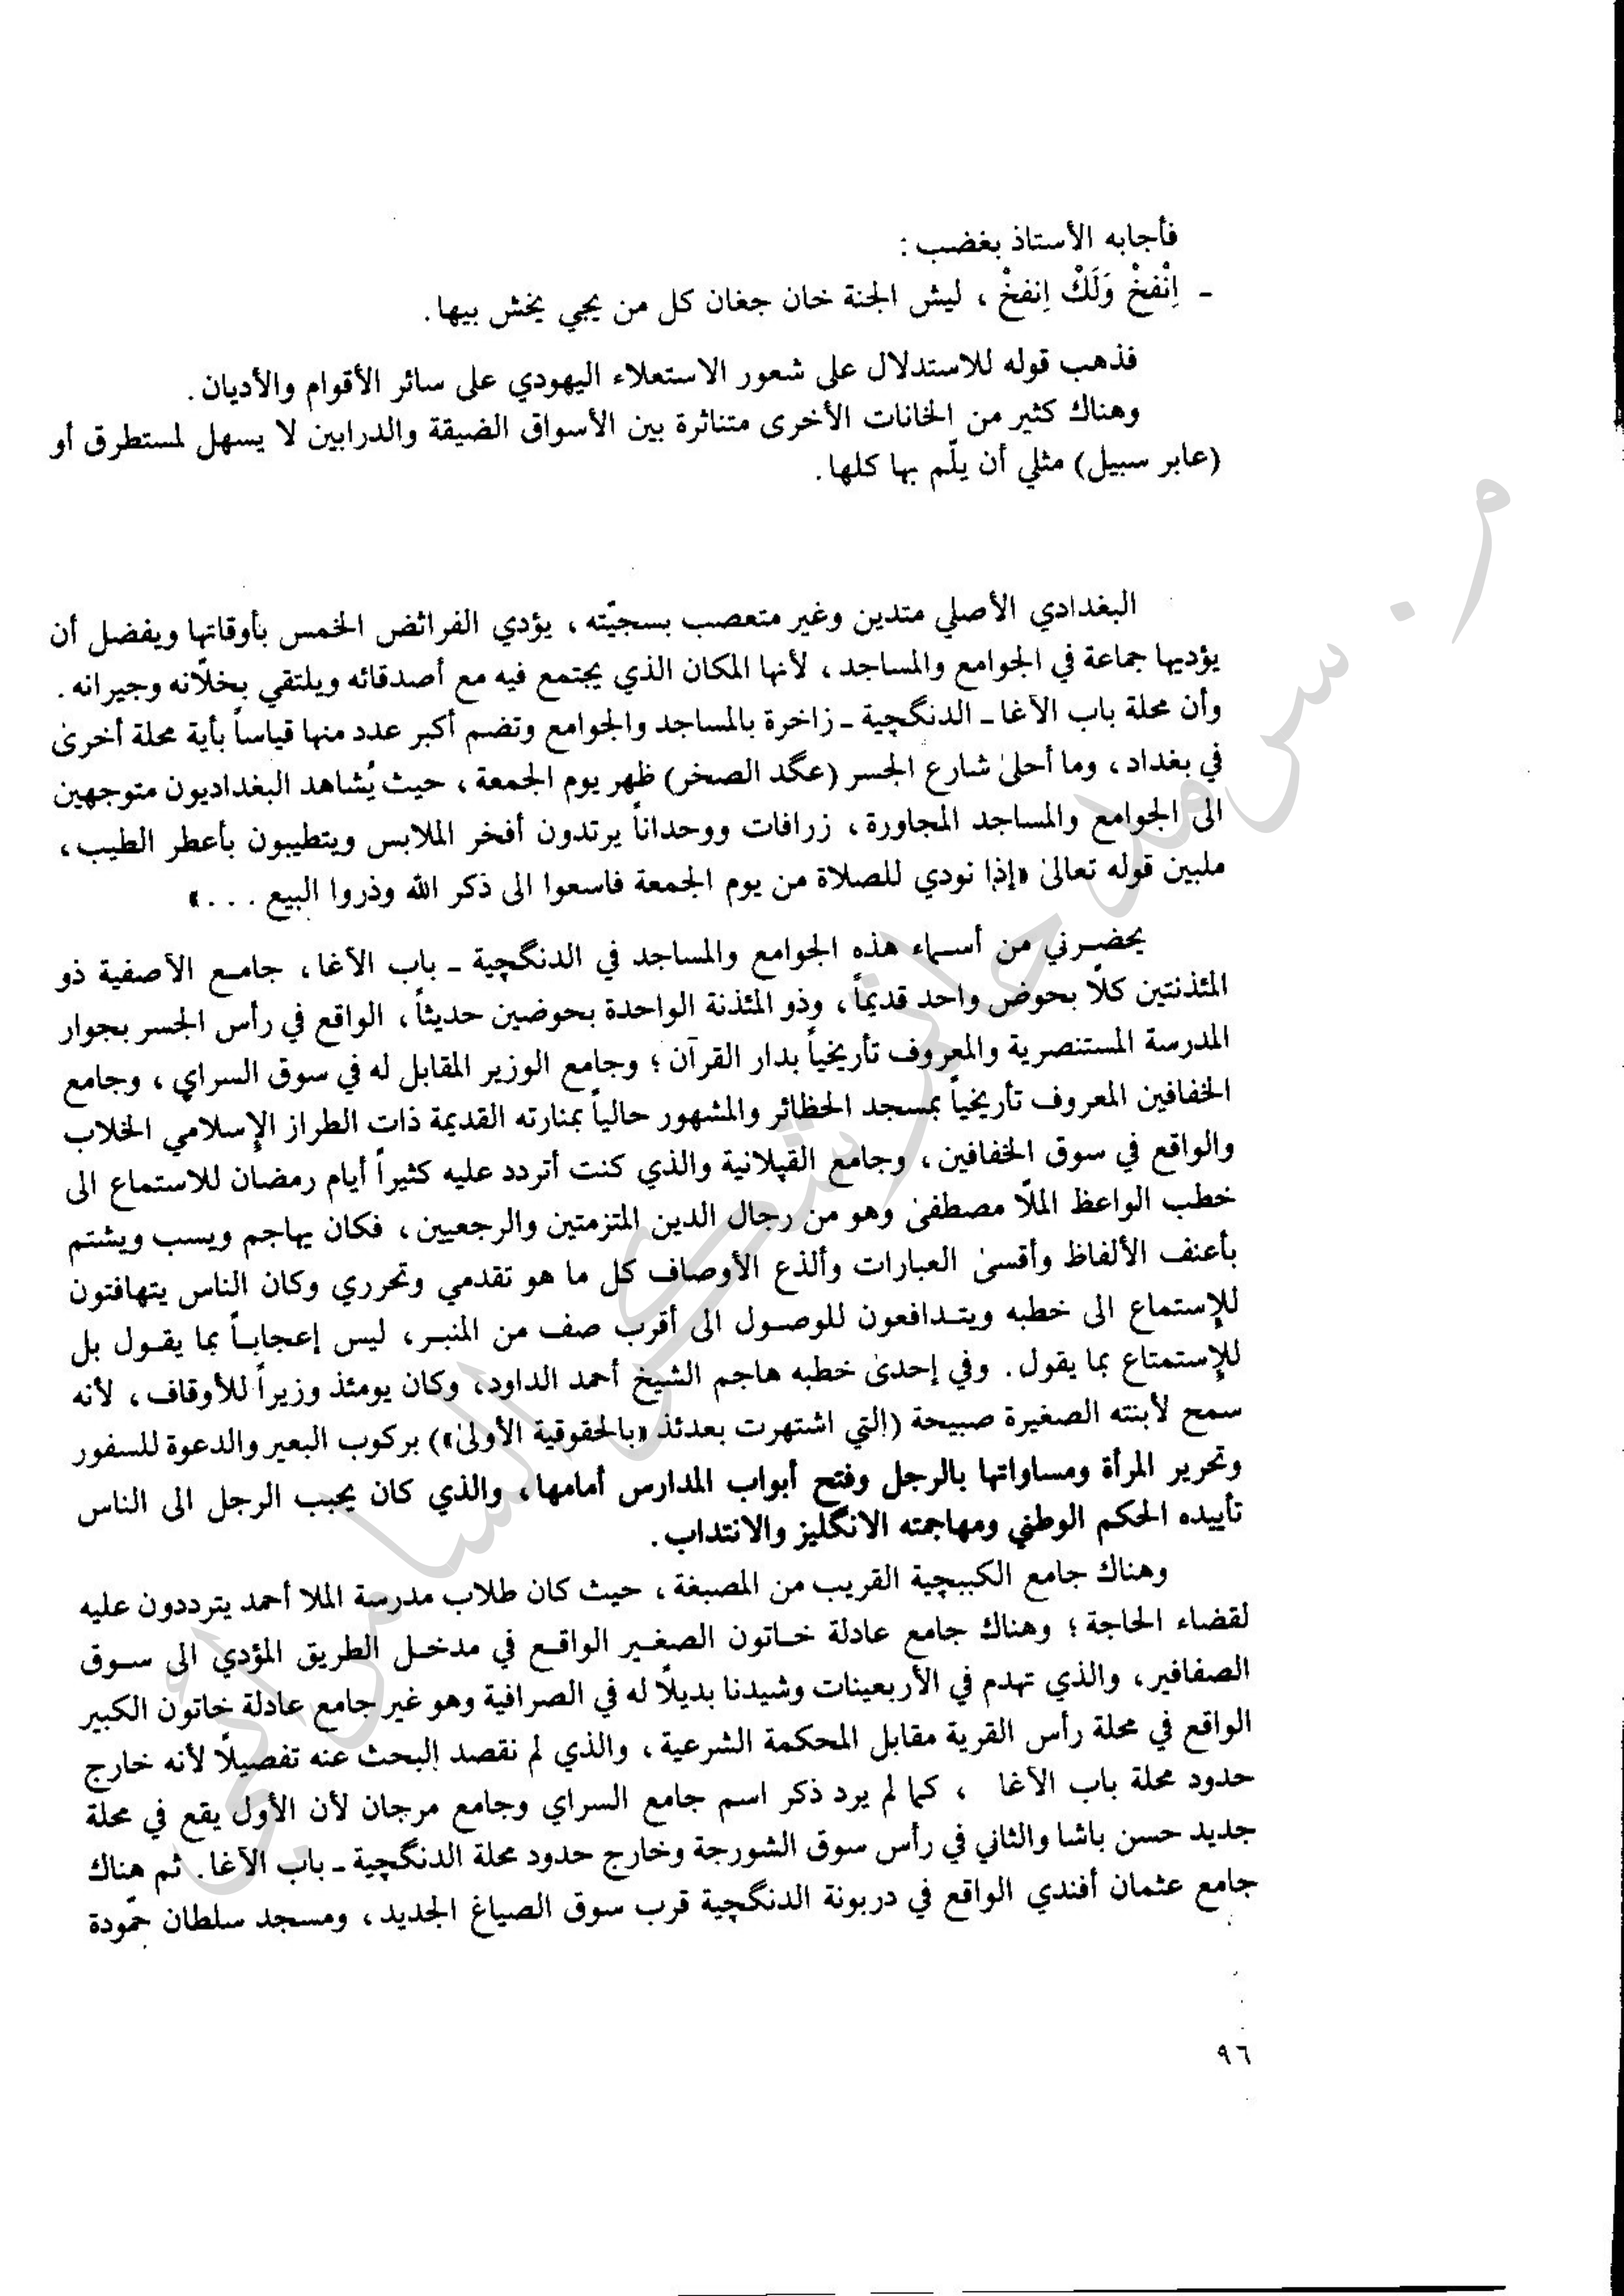 فأجابه الأستاذ بغضب :
ـ اِنْفخْ وَلَكْ اِنفخْ ، ليش الجنة خان جغان كل من يجي يخش بيها .
فذهب قوله للاستدلال على شعور الاستعلاء اليهودي على سائر الأقوام والأديان .
وهناك كثير من الخانات الأخرى متناثرة بين الأسواق الضيقة والدرابين لا يسهل لمستطرق أو
(عابر سبيل) مثلي أن يلّم بها كلها .
البغدادي الأصلي متدين وغير متعصب بسجيّته ، يؤدي الفرائض الخمس بأوقاتها ويفضل أن
يؤديها جماعة في الجوامع والمساجد ، لأنها المكان الذي يجتمع فيه مع أصدقائه ويلتقي بخلّانه وجيرانه .
وأن محلة باب الآغا ـ الدنگچية ـ زاخرة بالمساجد والجوامع وتضم أكبر عدد منها قياساً بأية محلة أخرىٰ
في بغداد ، وما أحلىٰ شارع الجسر (عگد الصخر) ظهر يوم الجمعة ، حيث يُشاهد البغداديون متوجهين
الى الجوامع والمساجد المجاورة ، زرافات ووحداناً يرتدون أفخر الملابس ويتطيبون بأعطر الطيب ،
ملبين قوله تعالىٰ «إذا نودي للصلاة من يوم الجمعة فاسعوا الى ذكر الله وذروا البيع . . . »
يحضرني من أسماء هذه الجوامع والمساجد في الدنگچية ـ باب الآغا ، جامع الآصفية ذو
المئذنتين كلًا بحوض واحد قديماً ، وذو المئذنة الواحدة بحوضين حديثاً ، الواقع في رأس الجسر بجوار
المدرسة المستنصرية والمعروف تأريخياً بدار القرآن ؛ وجامع الوزير المقابل له في سوق السراي ، وجامع
الخفافين المعروف تأريخياً بمسجد الحظائر والمشهور حالياً بمنارته القديمة ذات الطراز الإسلامي الخلاب
والواقع في سوق الخفافين ، وجامع القپلانية والذي كنت أتردد عليه كثيراً أيام رمضان للاستماع الى
خطب الواعظ الملّا مصطفىٰ وهو من رجال الدين المتزمتين والرجعيين ، فكان يهاجم ويسب ويشتم
بأعنف الألفاظ وأقسىٰ العبارات وألذع الأوصاف كل ما هو تقدمي وتحرري وكان الناس يتهافتون
للإستماع الى خطبه ويتدافعون للوصول الى أقرب صف من المنبر ، ليس إعجاباً بما يقول بل
للإستمتاع بما يقول . وفي إحدىٰ خطبه هاجم الشيخ أحمد الداود ، وكان يومئذ وزيراً للأوقاف ، لأنه
سمح لأبنته الصغيرة صبيحة (التي اشتهرت بعدئذ «بالحقوقية الأولىٰ») بركوب البعير والدعوة للسفور
وتحرير المرأة ومساواتها بالرجل وفتح أبواب المدارس أمامها ، والذي كان يحبب الرجل الى الناس
تأييده الحكم الوطني ومهاجمته الانگليز والانتداب .
وهناك جامع الكببچية القريب من المصبغة ، حيث كان طلاب مدرسة الملا أحمد يترددون عليه
لقضاء الحاجة ؛ وهناك جامع عادلة خاتون الصغير الواقع في مدخل الطريق المؤدي الى سوق
الصفافير ، والذي تهدم في الأربعينات وشيدنا بديلًا له في الصرافية وهو غير جامع عادلة خاتون الكبير
الواقع في محلة رأس القرية مقابل المحكمة الشرعية ، والذي لم نقصد البحث عنه تفصيلًا لأنه خارج
حدود محلة باب الآغا ، كما لم يرد ذكر اسم جامع السراي وجامع مرجان لأن الأول يقع في محلة
جديد حسن باشا والثاني في رأس سوق الشورجة وخارج حدود محلة الدنگچية ـ باب الآغا . ثم هناك
جامع عثمان أفندي الواقع في دربونة الدنگچية قرب سوق الصياغ الجديد ، ومسجد سلطان حمّودة
٩٦